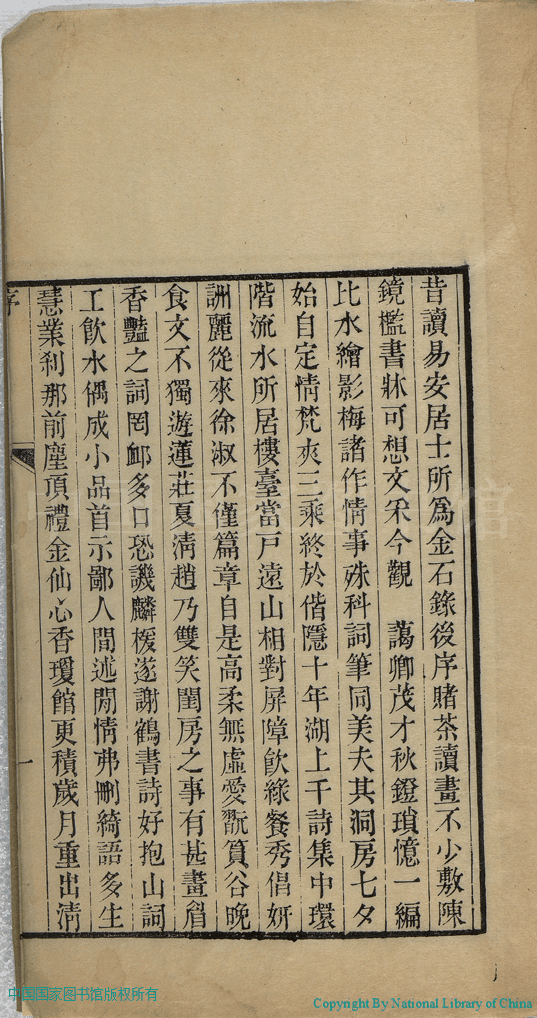 昔讀易安居士所為金石錄後序賭茶讀畫不少敷陳
鏡檻書牀可想文采今觀　藹卿茂才秋鐙瑣憶一編
比水繪影梅諸作情事殊科詞筆同美夫其洞房七夕
始自定情梵夾三乘終於偕隱十年湖上千詩集中環
階流水所居樓臺當戶遠山相對屏障飲綠餐秀倡妍
詶麗從來徐淑不僅篇章自是高柔無虛愛翫篔谷晚
食文不獨遊蓮莊夏淸趙乃雙笑閨房之事有甚畫眉
香豔之詞罔卹多口恐譏麟楥遂謝鶴書詩好抱山詞
工飮水偶成小品首示鄙人間述閒情弗刪綺語多生
慧業刹那前塵頂禮金仙心香瓊館更積歲月重出淸
序
一
中国国家图书馆版权所有
Copyright By National Library of China